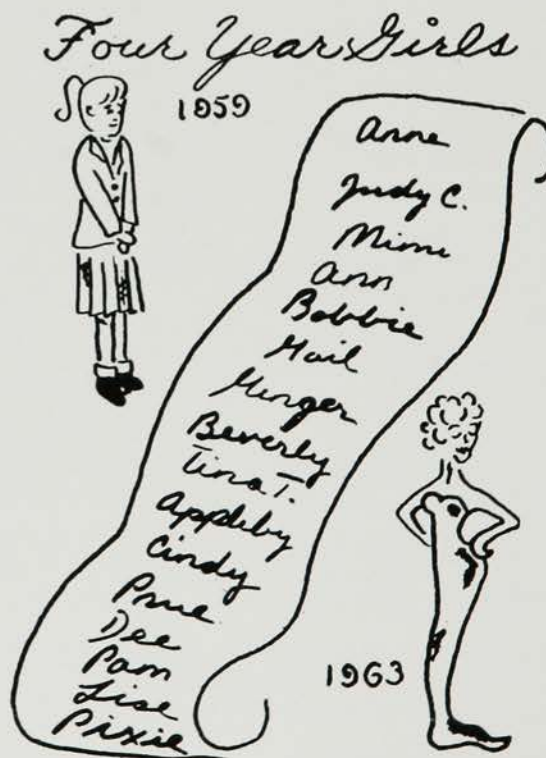 Four Year Girls
1959
Anne
Judy C.
Mimi
Ann
Bobbie
Gail
Ginger
Beverly
Tina T.
Appleby
Cindy
Prue
Dee
Pam
Lise
Pixie
1963